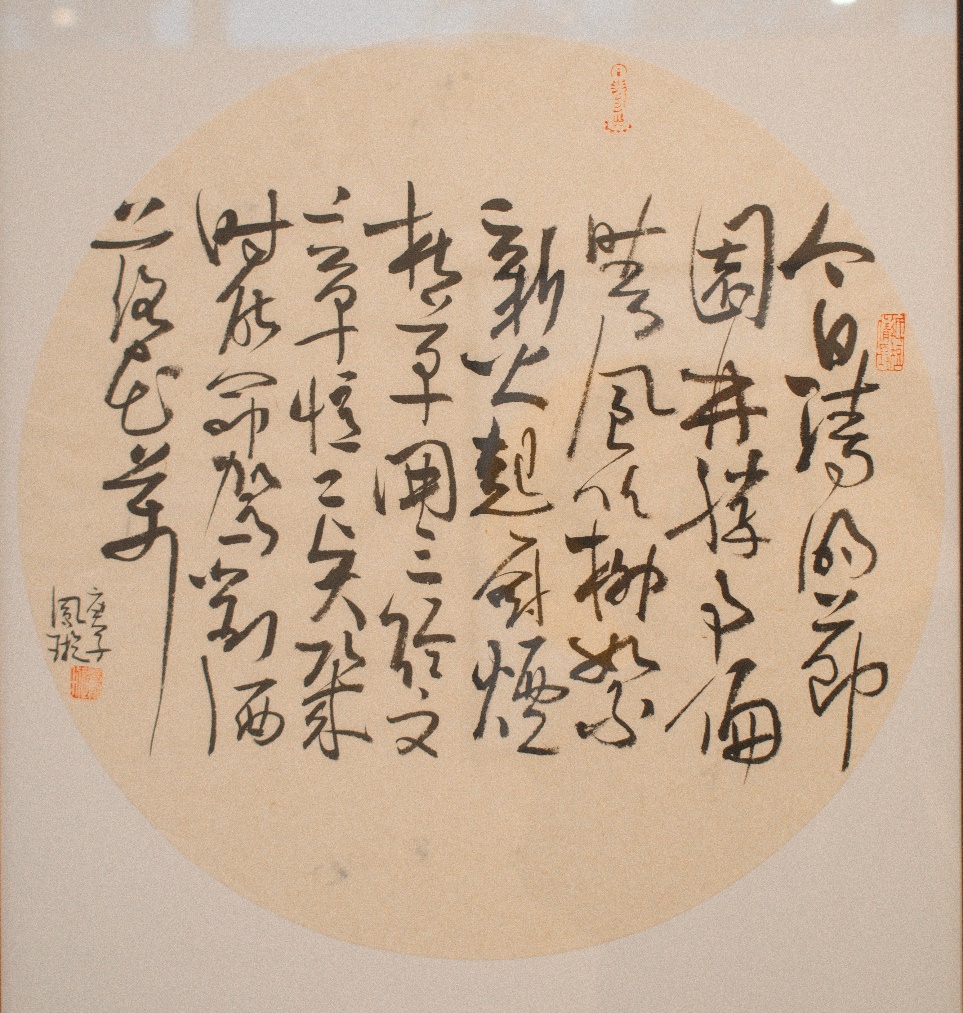 今日清明節
園林勝事偏
晴風吹柳絮
新火起厨煙
杜草開三徑文
章憶二賢幾
时能命駕對酒
落花前
庚子
鳳璇